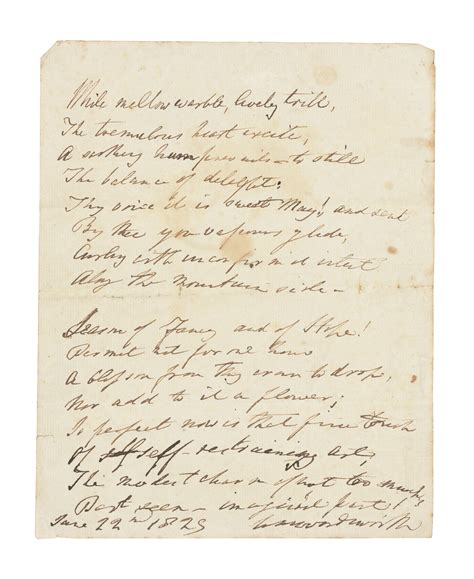 While mellow warble, lively trill,
The tremulous heart excite,
A soothing hum prevails to still
The balance of delight:
Thy voice it is sweet May! and sent
By thee yon vapours glide,
Curling with unconfirmd intent
Along the mountain side –
Season of Fancy and of Hope!
Permit not for one hour
A blossom from thy crown to drop,
Nor add to it a flower;
So perfect now is that fine touch
Of self-restraining art,
The modest charm of not too much,
Part seen – imagined part!
June 22nd 1825 Wm Wordsworth